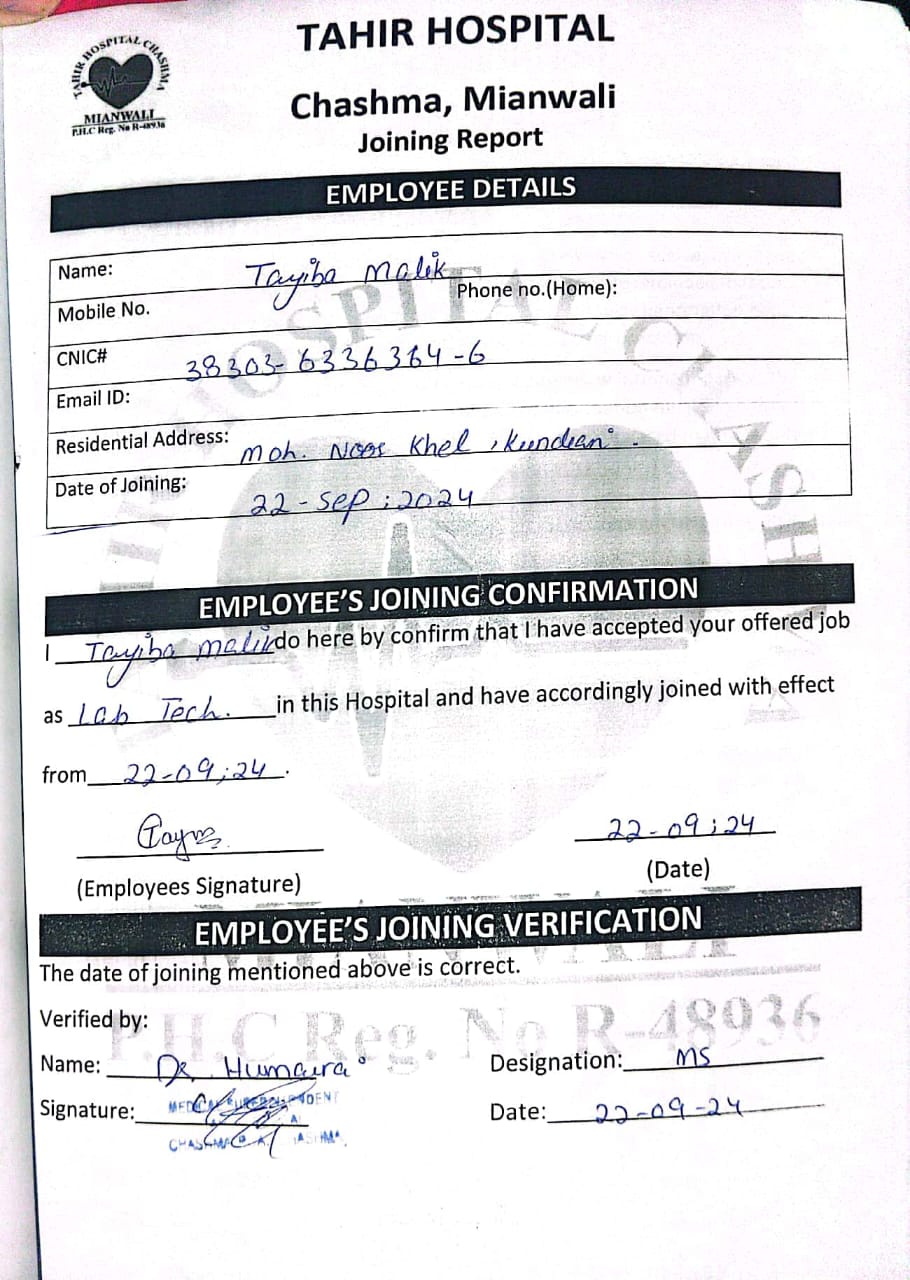 TAHIR HOSPITAL CHASHMA
MIANWALI
P.H.C Reg. No R-48936
TAHIR HOSPITAL
Chashma, Mianwali
Joining Report
EMPLOYEE DETAILS
Name: Tayiba Malik
Mobile No. Phone no.(Home):
CNIC# 38303-6336364-6
Email ID:
Residential Address: Moh. Noor Khel, Kundian.
Date of Joining: 22-Sep;2024
EMPLOYEE'S JOINING CONFIRMATION
I Tayiba Malik do here by confirm that I have accepted your offered job
as Lab Tech. in this Hospital and have accordingly joined with effect
from 22-09;24.
22-09;24
(Employees Signature) (Date)
EMPLOYEE'S JOINING VERIFICATION
The date of joining mentioned above is correct.
Verified by:
P.H.C Reg. No R-48936
Name: Dr Humaira Designation: MS
Signature: Date: 22-09-24